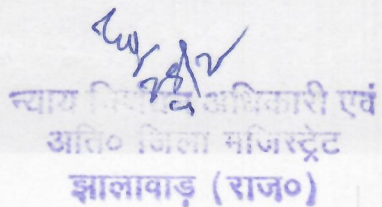 न्याय निर्णयन अधिकारी एवं
अति० जिला मजिस्ट्रेट
झालावाड़ (राज०)